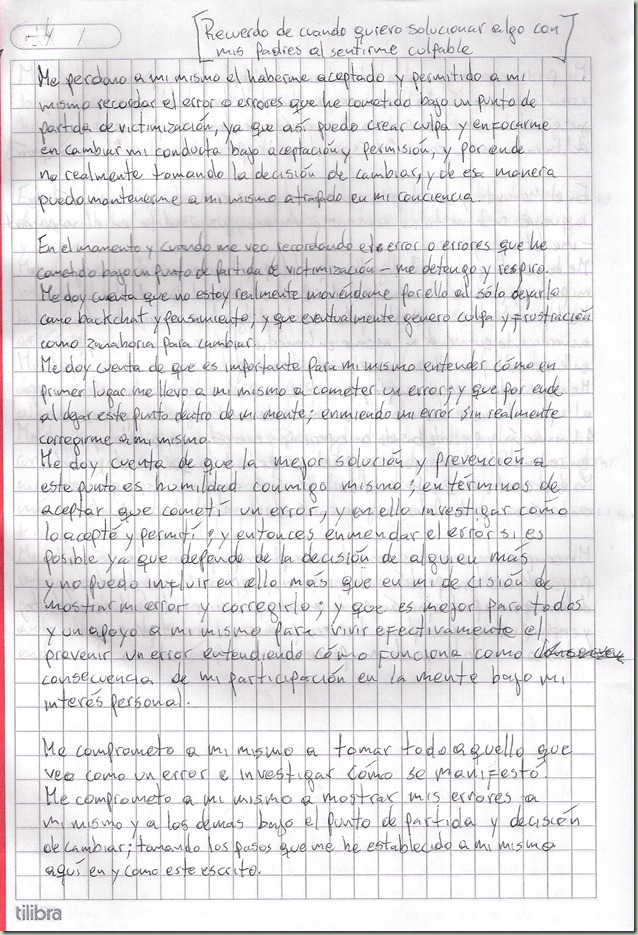 [Recuerdo de cuando quiero solucionar algo con
mis padres al sentirme culpable]
Me perdono a mi mismo el haberme aceptado y permitido a mi
mismo recordar el error o errores que he cometido bajo un punto de
partida de victimización, ya que así puedo crear culpa y enfocarme
en cambiar mi conducta bajo aceptación y permisión, y por ende
no realmente tomando la decisión de cambiar, y de esa manera
puedo mantenerme a mi mismo atrapado en mi conciencia.
En el momento y cuando me veo recordando el error o errores que he
cometido bajo un punto de partida de victimización – me detengo y respiro.
Me doy cuenta que no estoy realmente moviéndome por ello al sólo dejarlo
como backchat y pensamiento; y que eventualmente genero culpa y frustración
como zanahoria para cambiar.
Me doy cuenta de que es importante para mi mismo entender cómo en
primer lugar me llevo a mi mismo a cometer un error; y que por ende
al dejar este punto dentro de mi mente; enmiendo mi error sin realmente
corregirme a mi mismo.
Me doy cuenta de que la mejor solución y prevención a
este punto es humildad conmigo mismo; en términos de
aceptar que cometí un error, y en ello investigar cómo
lo acepté y permití; y entonces enmendar el error si es
posible ya que depende de la decisión de alguien más
y no puedo influir en ello más que en mi decisión de
mostrar mi error y corregirlo; y que es mejor para todos
y un apoyo a mi mismo para vivir efectivamente el
prevenir un error entendiendo cómo funciona como
consecuencia de mi participación en la mente bajo mi
interés personal.
Me comprometo a mi mismo a tomar todo aquello que
veo como un error e investigar cómo se manifestó.
Me comprometo a mi mismo a mostrar mis errores a
mi mismo y a los demás bajo el punto de partida y decisión
de cambiar; tomando los pasos que me he establecido a mi mismo
aquí en y como este escrito.
tilibra